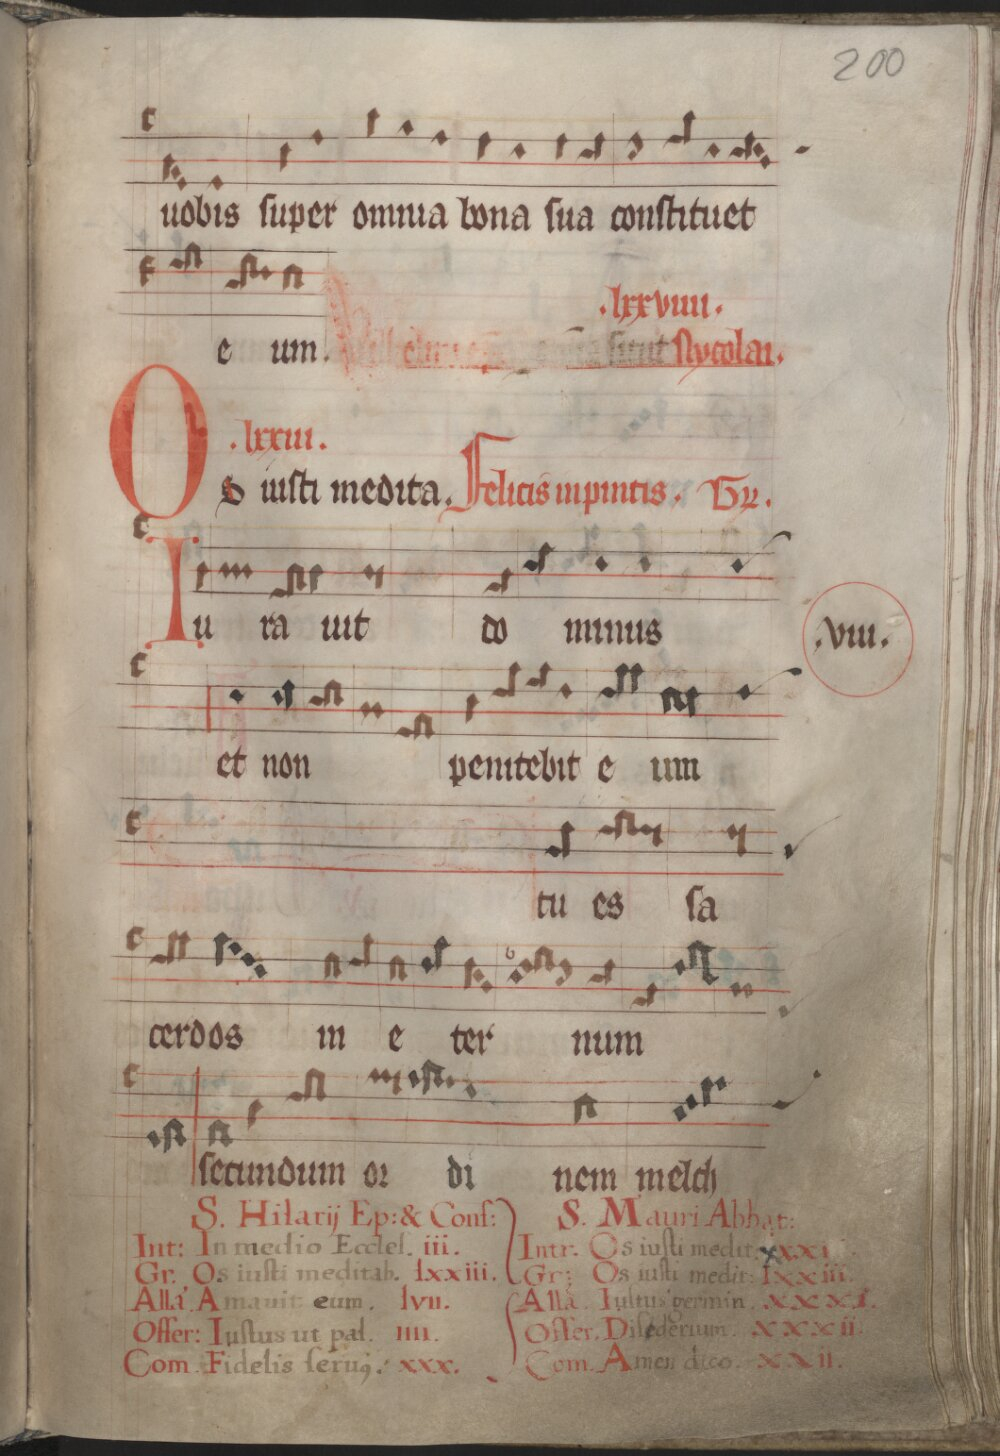 200
uobis super omnia bona sua constituet
e um.
.lxxviiii.
sunt Nycolai.
.lxxiii.
Os iusti medita. Felicis inpincis. Gr.
Iu ra uit do minus
.viii.
et non penitebit e um
tu es sa
cerdos in e ter num
secundum or di nem melch
S. Hilarij Ep: & Conf:
Int: In medio Eccles. iii.
Gr. Os iusti meditab. lxxiii.
Alla. Amauit eum. lvii.
Offer: Iustus ut pal. iiii.
Com. Fidelis seruq. xxx.
S. Mauri Abbat:
Intr. Os iusti medit. xxxi
Gr: Os iusti medit: lxxiii.
Alla. Iustus germin. xxxx.
Offer. Disederium. xxxii
Com. Amen dico. xxii.